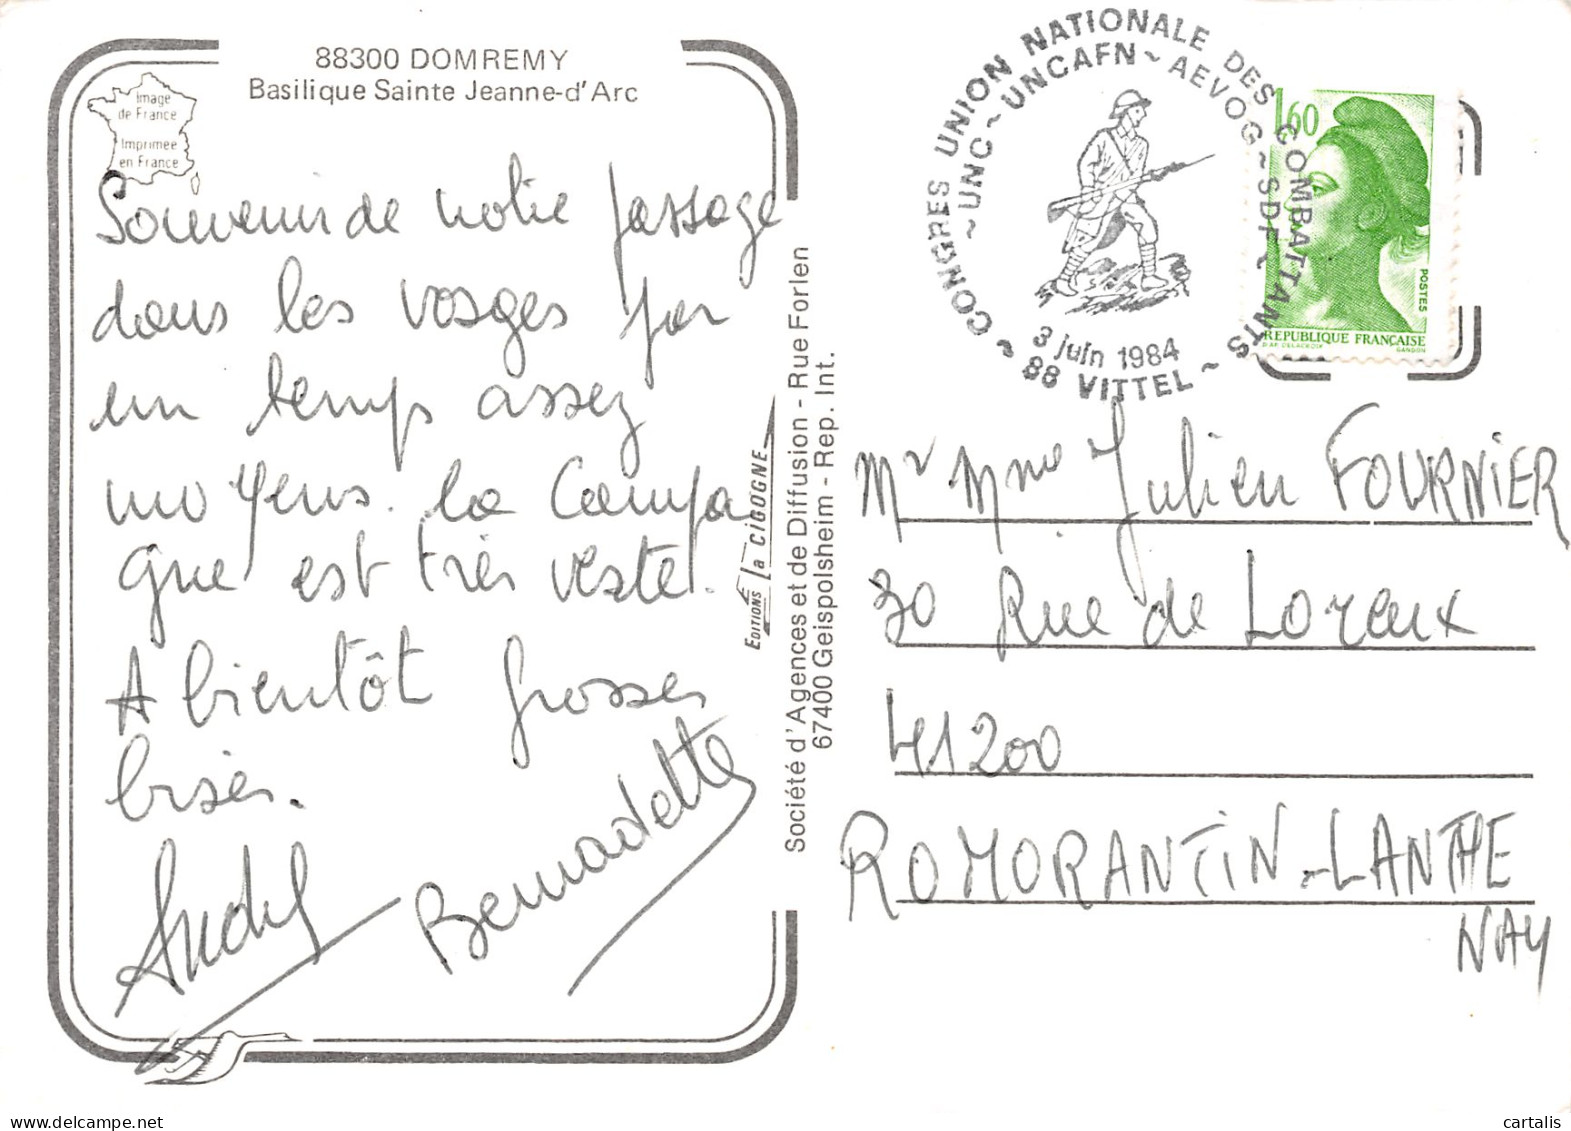 88300 DOMREMY
Basilique Sainte Jeanne-d'Arc
Image
de France
Imprimée
en France
Souvenir de notre passage
dans les vosges par
un temps assez
moyens. la Campa
gne est très veste.
A bientôt grosses
bises.
André
Bernadette
EDITIONS la CIGOGNE
Société d'Agences et de Diffusion - Rue Forlen
67400 Geispolsheim - Rep. Int.
CONGRES UNION NATIONALE DES COMBATTANTS
~ UNC ~ UNCAFN ~ AEVOG ~ SDFL
3 juin 1984
~ 88 VITTEL ~
1,60
POSTES
REPUBLIQUE FRANÇAISE
D'AP. DELACROIX GANDON
Mr Mme Julien FOURNIER
30 Rue de Loreux
41200
ROMORANTIN-LANTHE
NAY
cartalis